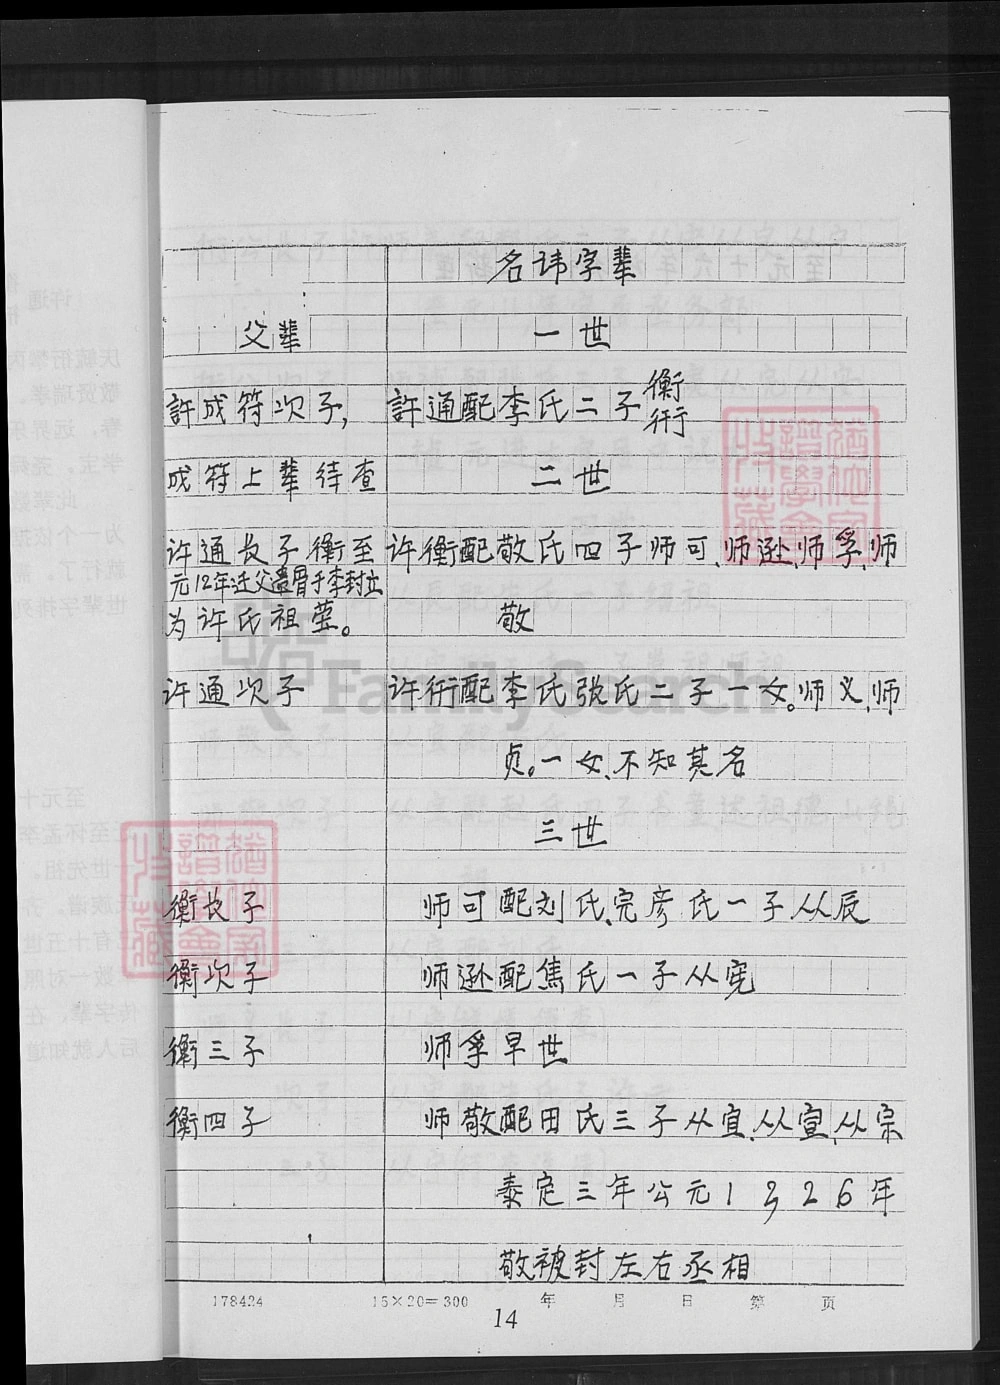 名讳字辈
父辈 一世
許成符次子, 許通配李氏二子衡
衎
成符上辈待查 二世
许通长子衡至 许衡配敬氏四子师可、师逊、师孚、师
元12年迁父遗骨于李封立
为许氏祖莹。 敬
许通次子 许衎配李氏张氏二子一女。师义、师
贞。一女、不知其名
三世
衡长子 师可配刘氏、完彦氏一子从辰
衡次子 师逊配焦氏一子从宪
衡三子 师孚早世
衡四子 师敬配田氏三子从宜、从宣、从宗
泰定三年公元1326年
敬被封左右丞相
178424 15×20=300 年 月 日 第 页
14
FamilySearch